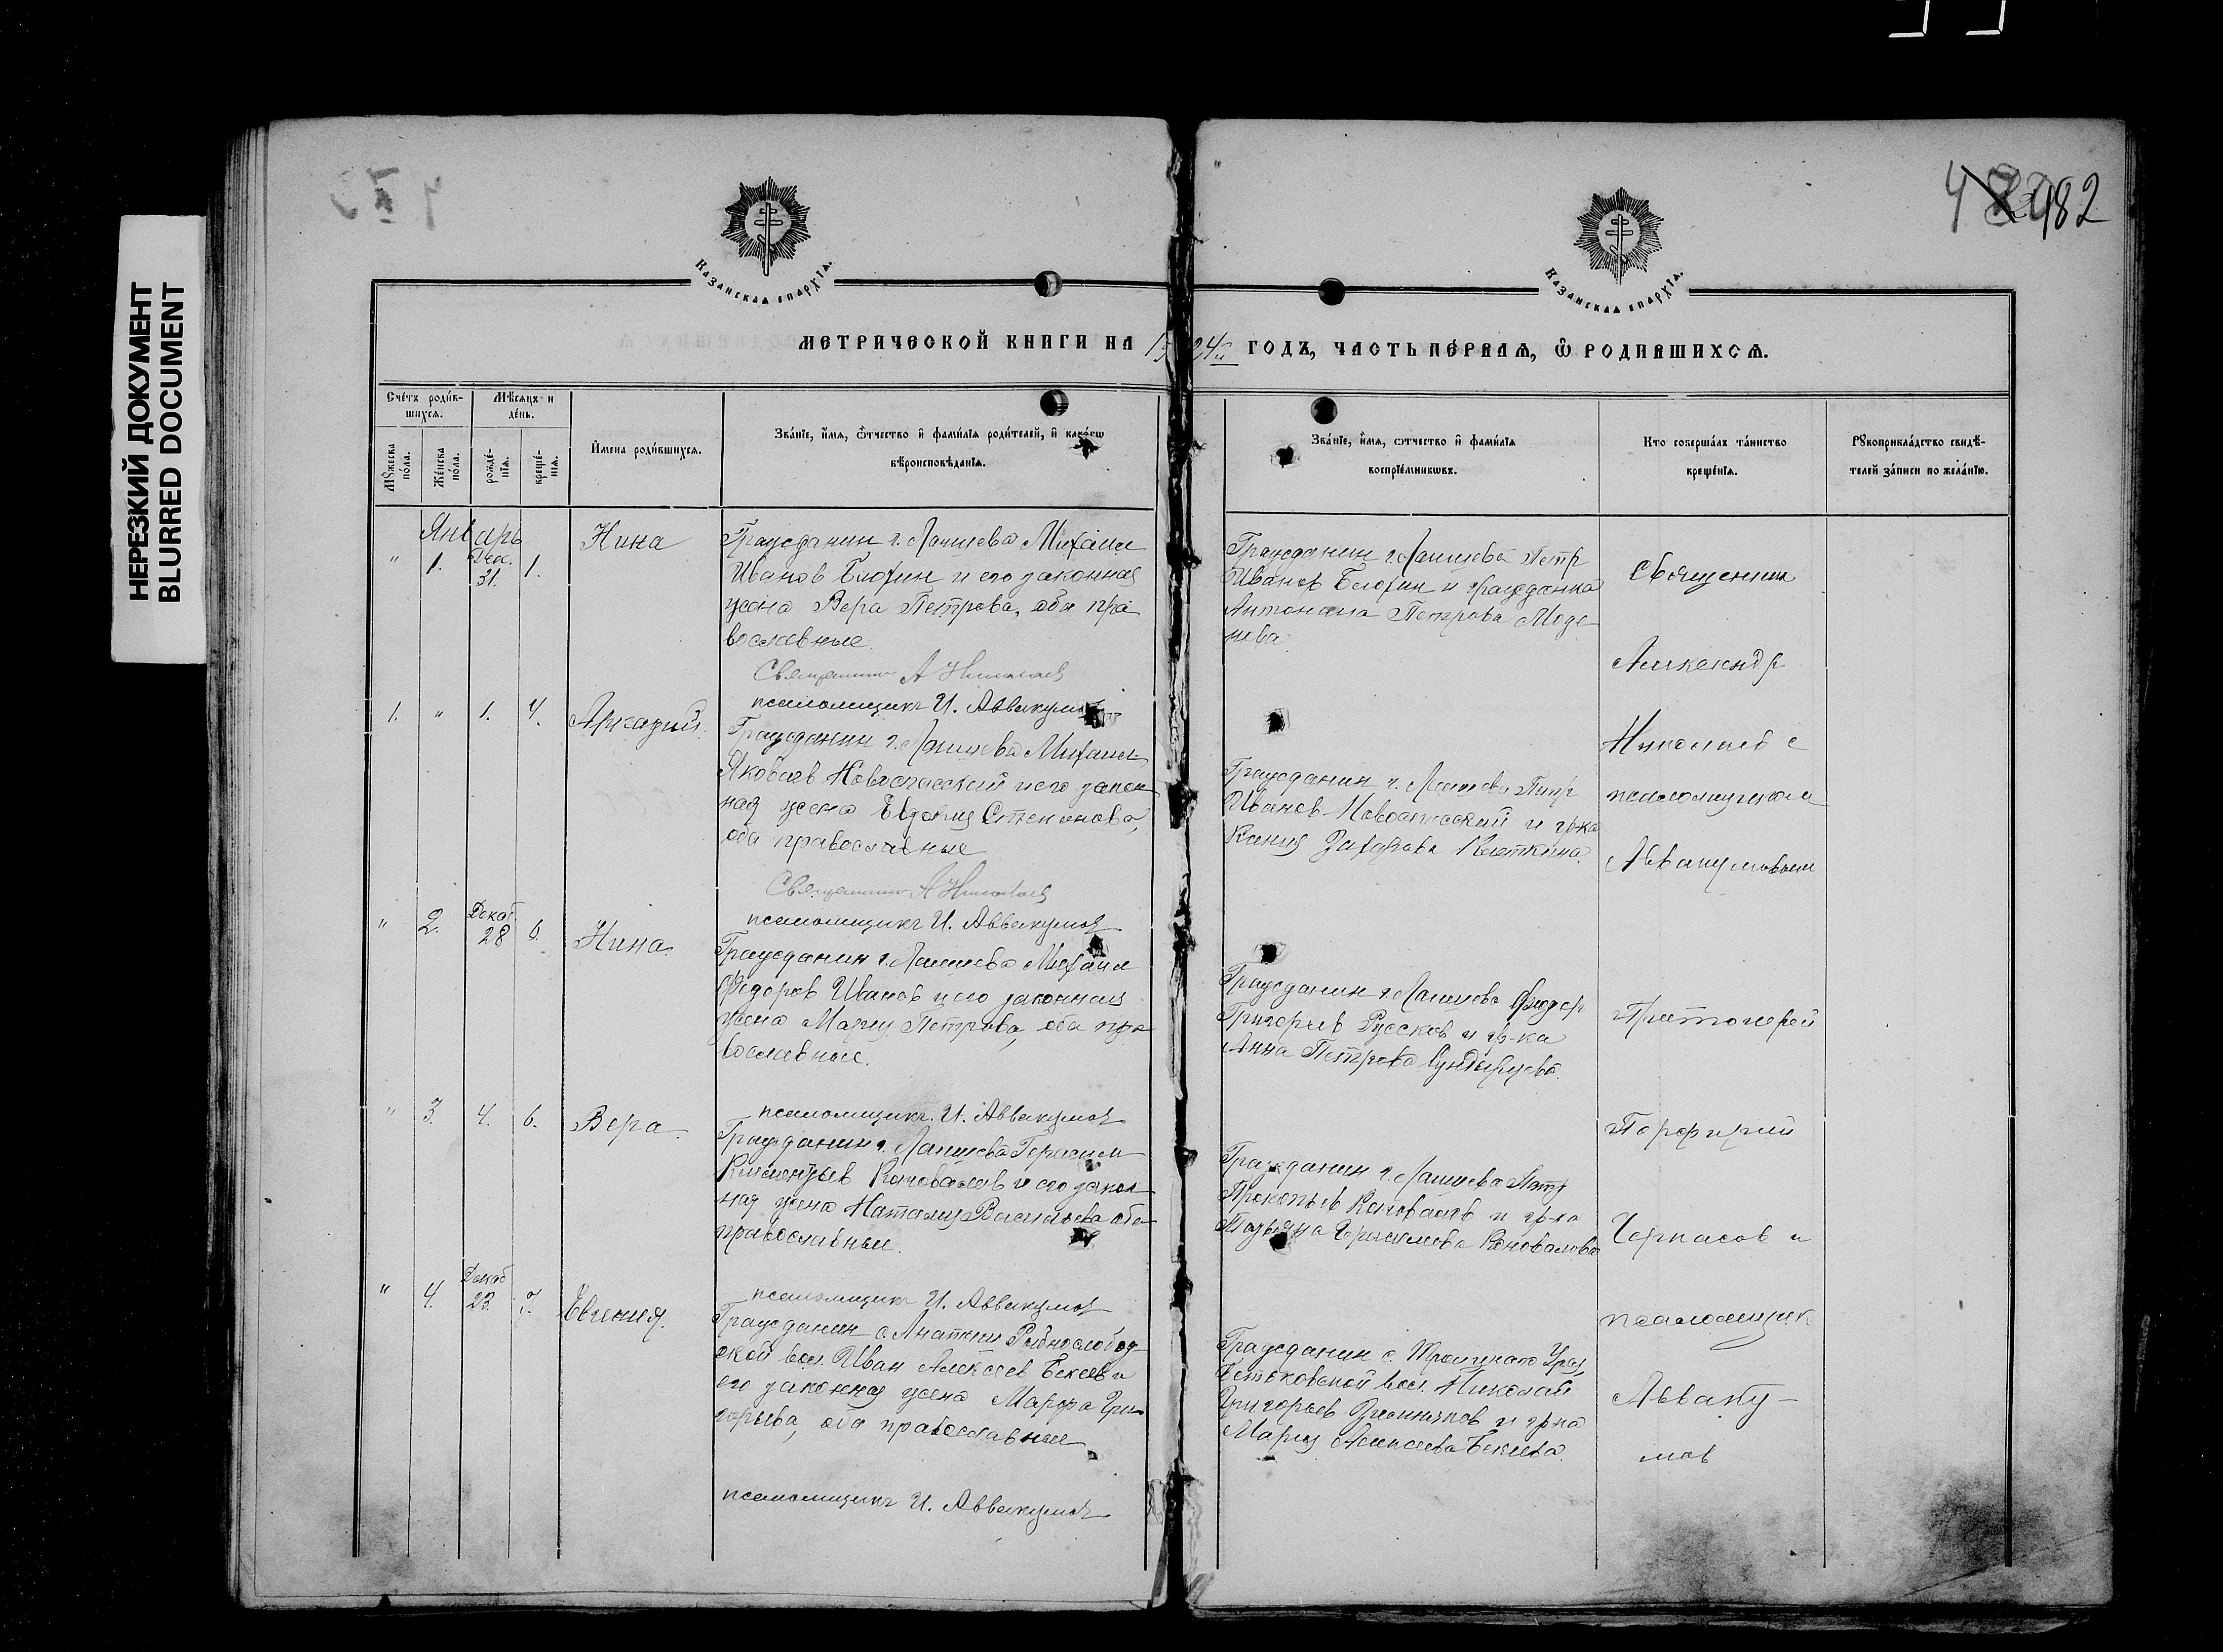 НЕРЕЗКИЙ ДОКУМЕНТ
BLURRED DOCUMENT
482
КАЗАНСКАѦ ЕПАРХІѦ.
КАЗАНСКАѦ ЕПАРХІѦ.
МЕТРИЧЕСКОЙ КНИГИ НА 1924й ГОДЪ, ЧАСТЬ ПЕРВАѦ, Ѡ РОДИВШИХСѦ.
Сче́тъ роди́в-
шихсѧ.
Мѣ́сѧцъ и
де́нь.
Мꙋ́жеска
по́ла.
Же́нска
по́ла.
рожде́-
нїѧ.
креще́-
нїѧ.
И҆мена роди́вшихсѧ.
Зва́нїе, и҆́мѧ, ѻ҆́тчество и҆ фами́лїѧ роди́телей, и҆ како́гѡ
вѣроисповѣ́данїѧ.
Зва́нїе, и҆́мѧ, ѻ҆́тчество и҆ фами́лїѧ
воспрїе́мникѡвъ.
Кто соверша́лъ та́инство
креще́нїѧ.
Рꙋкоприкла́дство свидѣ́-
телей за́писи по жела́нїю.
Январь
" 1. Дек. 31. 1. Нина
Гражданин г. Лаишева Михаил
Иванов Блохин и его законная
жена Вера Петрова, оба пра
вославные
Священник А Николаев
псаломщикъ И. Аввакумов
Гражданин г. Лаишева Петр
Иванов Блохин и гражданка
Антонина Петрова Моде-
нова
Священник
Александр
Николаев с
псаломщиком
Аввакумовым
1. " 1. 4. Аркадий.
Гражданин г. Лаишева Михаил
Яковлев Новоспасский и его закон
ная жена Евдокия Степанова,
оба православные
Священник А Николаев
псаломщикъ И. Аввакумов
Гражданин г. Лаишева Петр
Иванов Новоспасский и гр-ка
Ксения Захарова Клеткина.
" 2. Декаб. 28 6. Нина.
Гражданин г. Лаишева Михаил
Федоров Иванов и его законная
жена Мария Петрова, оба пра
вославные.
псаломщикъ И. Аввакумов
Гражданин г. Лаишева Феодор
Григорьев Руссков и гр-ка
Анна Петрова
Протоиерей
Порфирий
" 3. 4. 6. Вера.
Гражданин г. Лаишева Герасим
Климентьев Коновалов и его закон
ная жена Наталия Васильева оба
православные.
псаломщикъ И. Аввакумов
Гражданин г. Лаишева Петр
Прокопьев Коновалов и гр-ка
Татьяна Герасимова Коновалова
Черпасов и
псаломщик
" 4. Декаб 23. 7. Евгения.
Гражданин с. Анатыш Рыбнослобод
ской вол. Иван Алексеев Бекеев и
его законная жена Марфа Гри-
горьева, оба православные
псаломщикъ И. Аввакумов
Гражданин с. Троицкого Урая,
вол. Николай
Григорьев и гр-ка
Мария Алексеева Бекеева.
Авваку-
мов